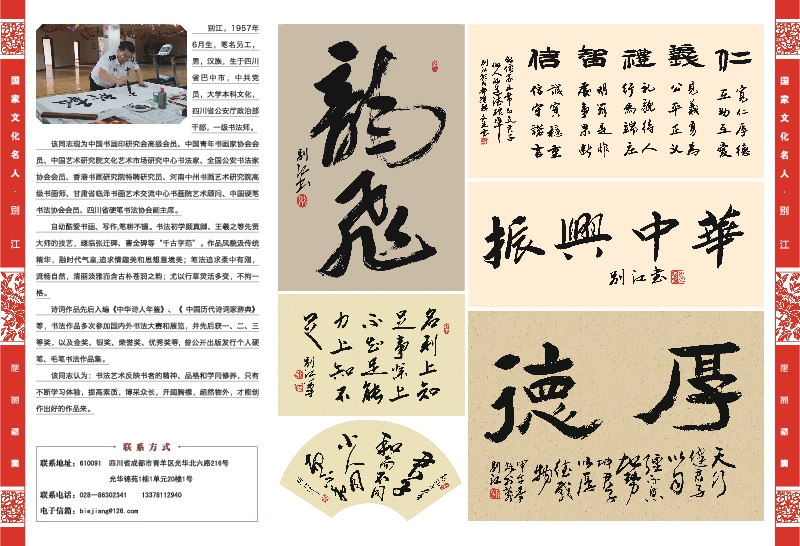 国家文化名人·别江
别江，1957年
6月生，笔名员工，
男，汉族，生于四川
省巴中市，中共党
员，大学本科文化，
四川省公安厅政治部
干部，一级书法师。
该同志现为中国书画印研究会高级会员、中国青年书画家协会会
员、中国艺术研究院文化艺术市场研究中心书法家、全国公安书法家
协会会员、香港书画研究院特聘研究员、河南中州书画艺术研究院高
级书画师、甘肃省临泽书画艺术交流中心书画院艺术顾问、中国硬笔
书法协会会员、四川省硬笔书法协会副主席。
自幼酷爱书画、写作，笔耕不辍。书法初学颜真卿、王羲之等先贤
大师的技艺，继临张迁碑、曹全碑等“千古字范”。作品风貌汲传统
精华，融时代气息，追求情趣美和思想意境美；笔法追求柔中有刚，
流畅自然，清丽淡雅而含古朴苍润之韵；尤以行草灵活多变，不拘一
格。
诗词作品先后入编《中华诗人年鉴》、《中国历代诗词家辞典》
等，书法作品多次参加国内外书法大赛和展览，并先后获一、二、三
等奖，以及金奖、银奖、荣誉奖、优秀奖等，曾公开出版发行个人硬
笔、毛笔书法作品集。
该同志认为：书法艺术反映书者的精神、品格和学问修养，只有
不断学习体验，提高素质，博采众长，开阔胸襟，超然物外，才能创
作出好的作品来。
联系方式
联系地址：610091 四川省成都市青羊区光华北六路216号
光华锦苑1栋1单元20楼1号
联系电话：028—86302341 13378112940
电子信箱：biejiang@126.com
龍飛
别江书
名利上知
足事业上
知不足能
力上知不
足
别江草
君子
和而不同
小人同
而不和
仁義禮智信
寬仁厚德
互助互愛
見義勇為
公平正义
礼貌待人
行為端庄
明辨是非
處事果断
誠實穩重
信守諾言
振興中華
别江书
厚德
天行
健君子
以自
强不息
地势
坤君子
以厚
德载
物
别江
国家文化名人·别江